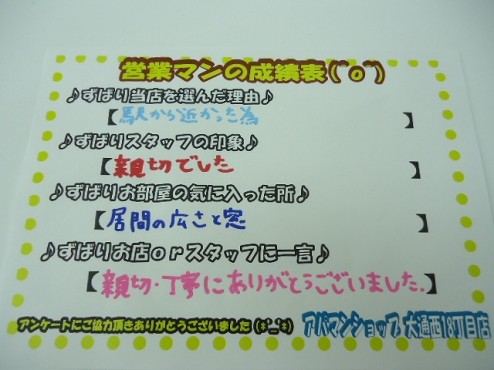 営業マンの成績表(^o^)
♪ずばり当店を選んだ理由♪
【駅から近かった為】
♪ずばりスタッフの印象♪
【親切でした】
♪ずばりお部屋の気に入った所♪
【居間の広さと窓】
♪ずばりお店orスタッフに一言♪
【親切・丁寧にありがとうございました。】
アンケートにご協力頂きありがとうございました(*^_^*) アパマンショップ 大通西18丁目店